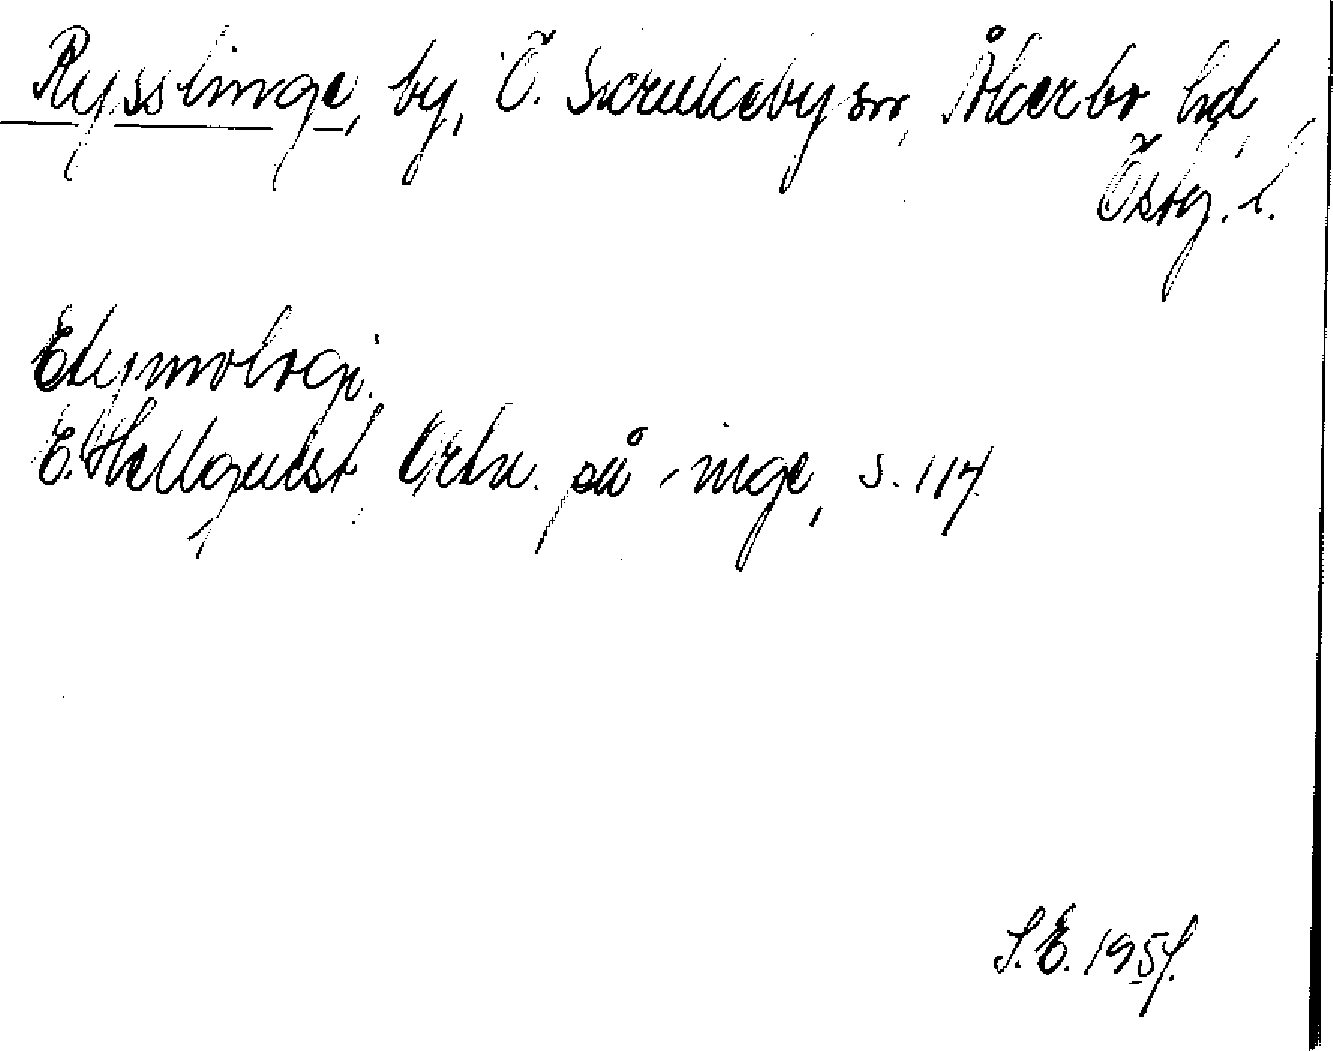 Rysslinge, by, Ö. Skrukeby sn, Åkerbo hd,
Östg. l.
Etymologi.
E. Hellquist, Ortn. på -inge, s. 114.
S.E. 1957.